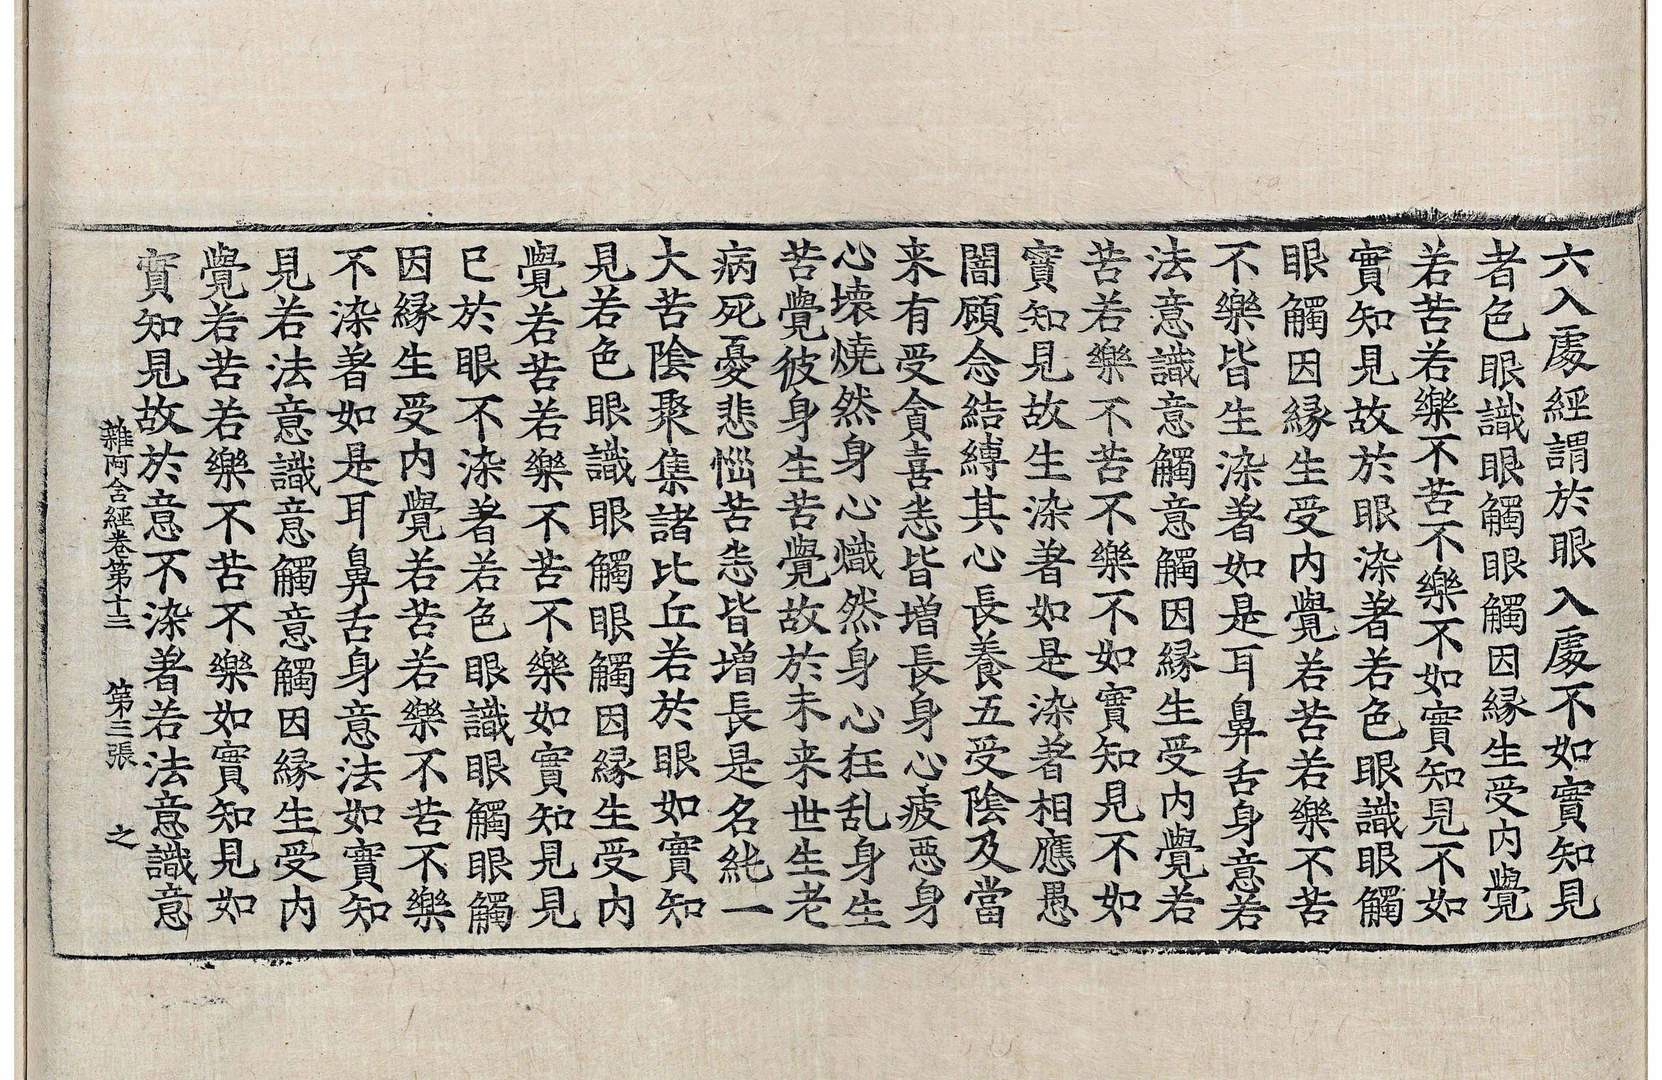 六入處經謂於眼入處不如實知見
者色眼識眼觸眼觸因緣生受內覺
若苦若樂不苦不樂不如實知見不如
實知見故於眼染著若色眼識眼觸
眼觸因緣生受內覺若苦若樂不苦
不樂皆生染著如是耳鼻舌身意若
法意識意觸意觸因緣生受內覺若
苦若樂不苦不樂不如實知見不如
實知見故生染著如是染著相應愚
闇顧念結縛其心長養五受陰及當
来有受貪喜恚皆增長身心疲惡身
心壞燒然身心熾然身心狂乱身生
苦覺彼身生苦覺故於未来世生老
病死憂悲惱苦恚皆增長是名純一
大苦陰聚集諸比丘若於眼如實知
見若色眼識眼觸眼觸因緣生受內
覺若苦若樂不苦不樂如實知見見
已於眼不染著若色眼識眼觸眼觸
因緣生受內覺若苦若樂不苦不樂
不染著如是耳鼻舌身意法如實知
見若法意識意觸意觸因緣生受內
覺若苦若樂不苦不樂如實知見如
實知見故於意不染著若法意識意
雜阿含經卷第十三 第三張 之